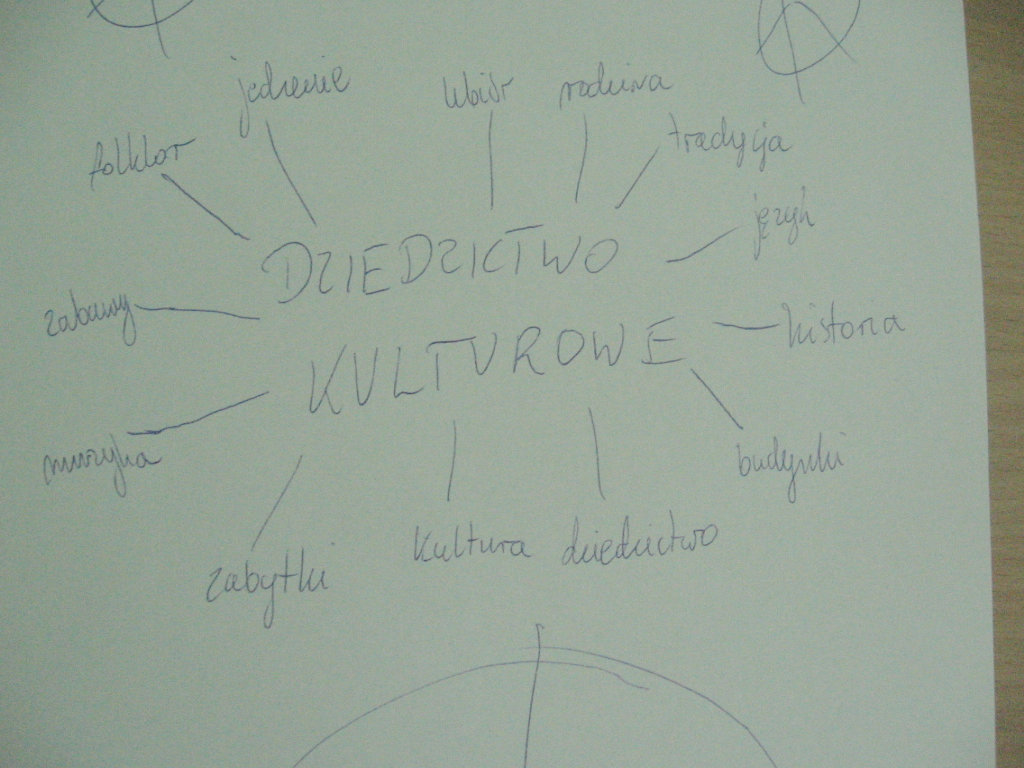 jedzenie
ubiór
rodzina
folklor
tradycja
język
DZIEDZICTWO
zabawy
historia
KULTUROWE
muzyka
budynki
zabytki
kultura
dziedzictwo